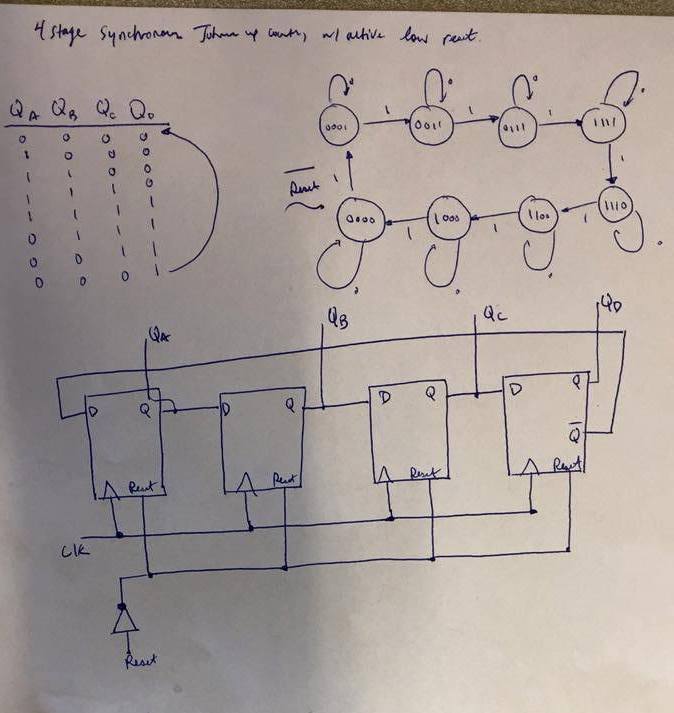 4 stage Synchronous Johnson up counter, w/ active low reset.
QA QB QC QD
0 0 0 0
1 0 0 0
1 1 0 0
1 1 1 0
1 1 1 1
0 1 1 1
0 0 1 1
0 0 0 1
0 0 0 0
0001 1 0011 1 0111 1 1111
1
Reset
1
0000 1 1000 1 1100 1 1110
QA QB QC QD
D Q D Q D Q D Q
Q
Reset Reset Reset Reset
Clk
Reset